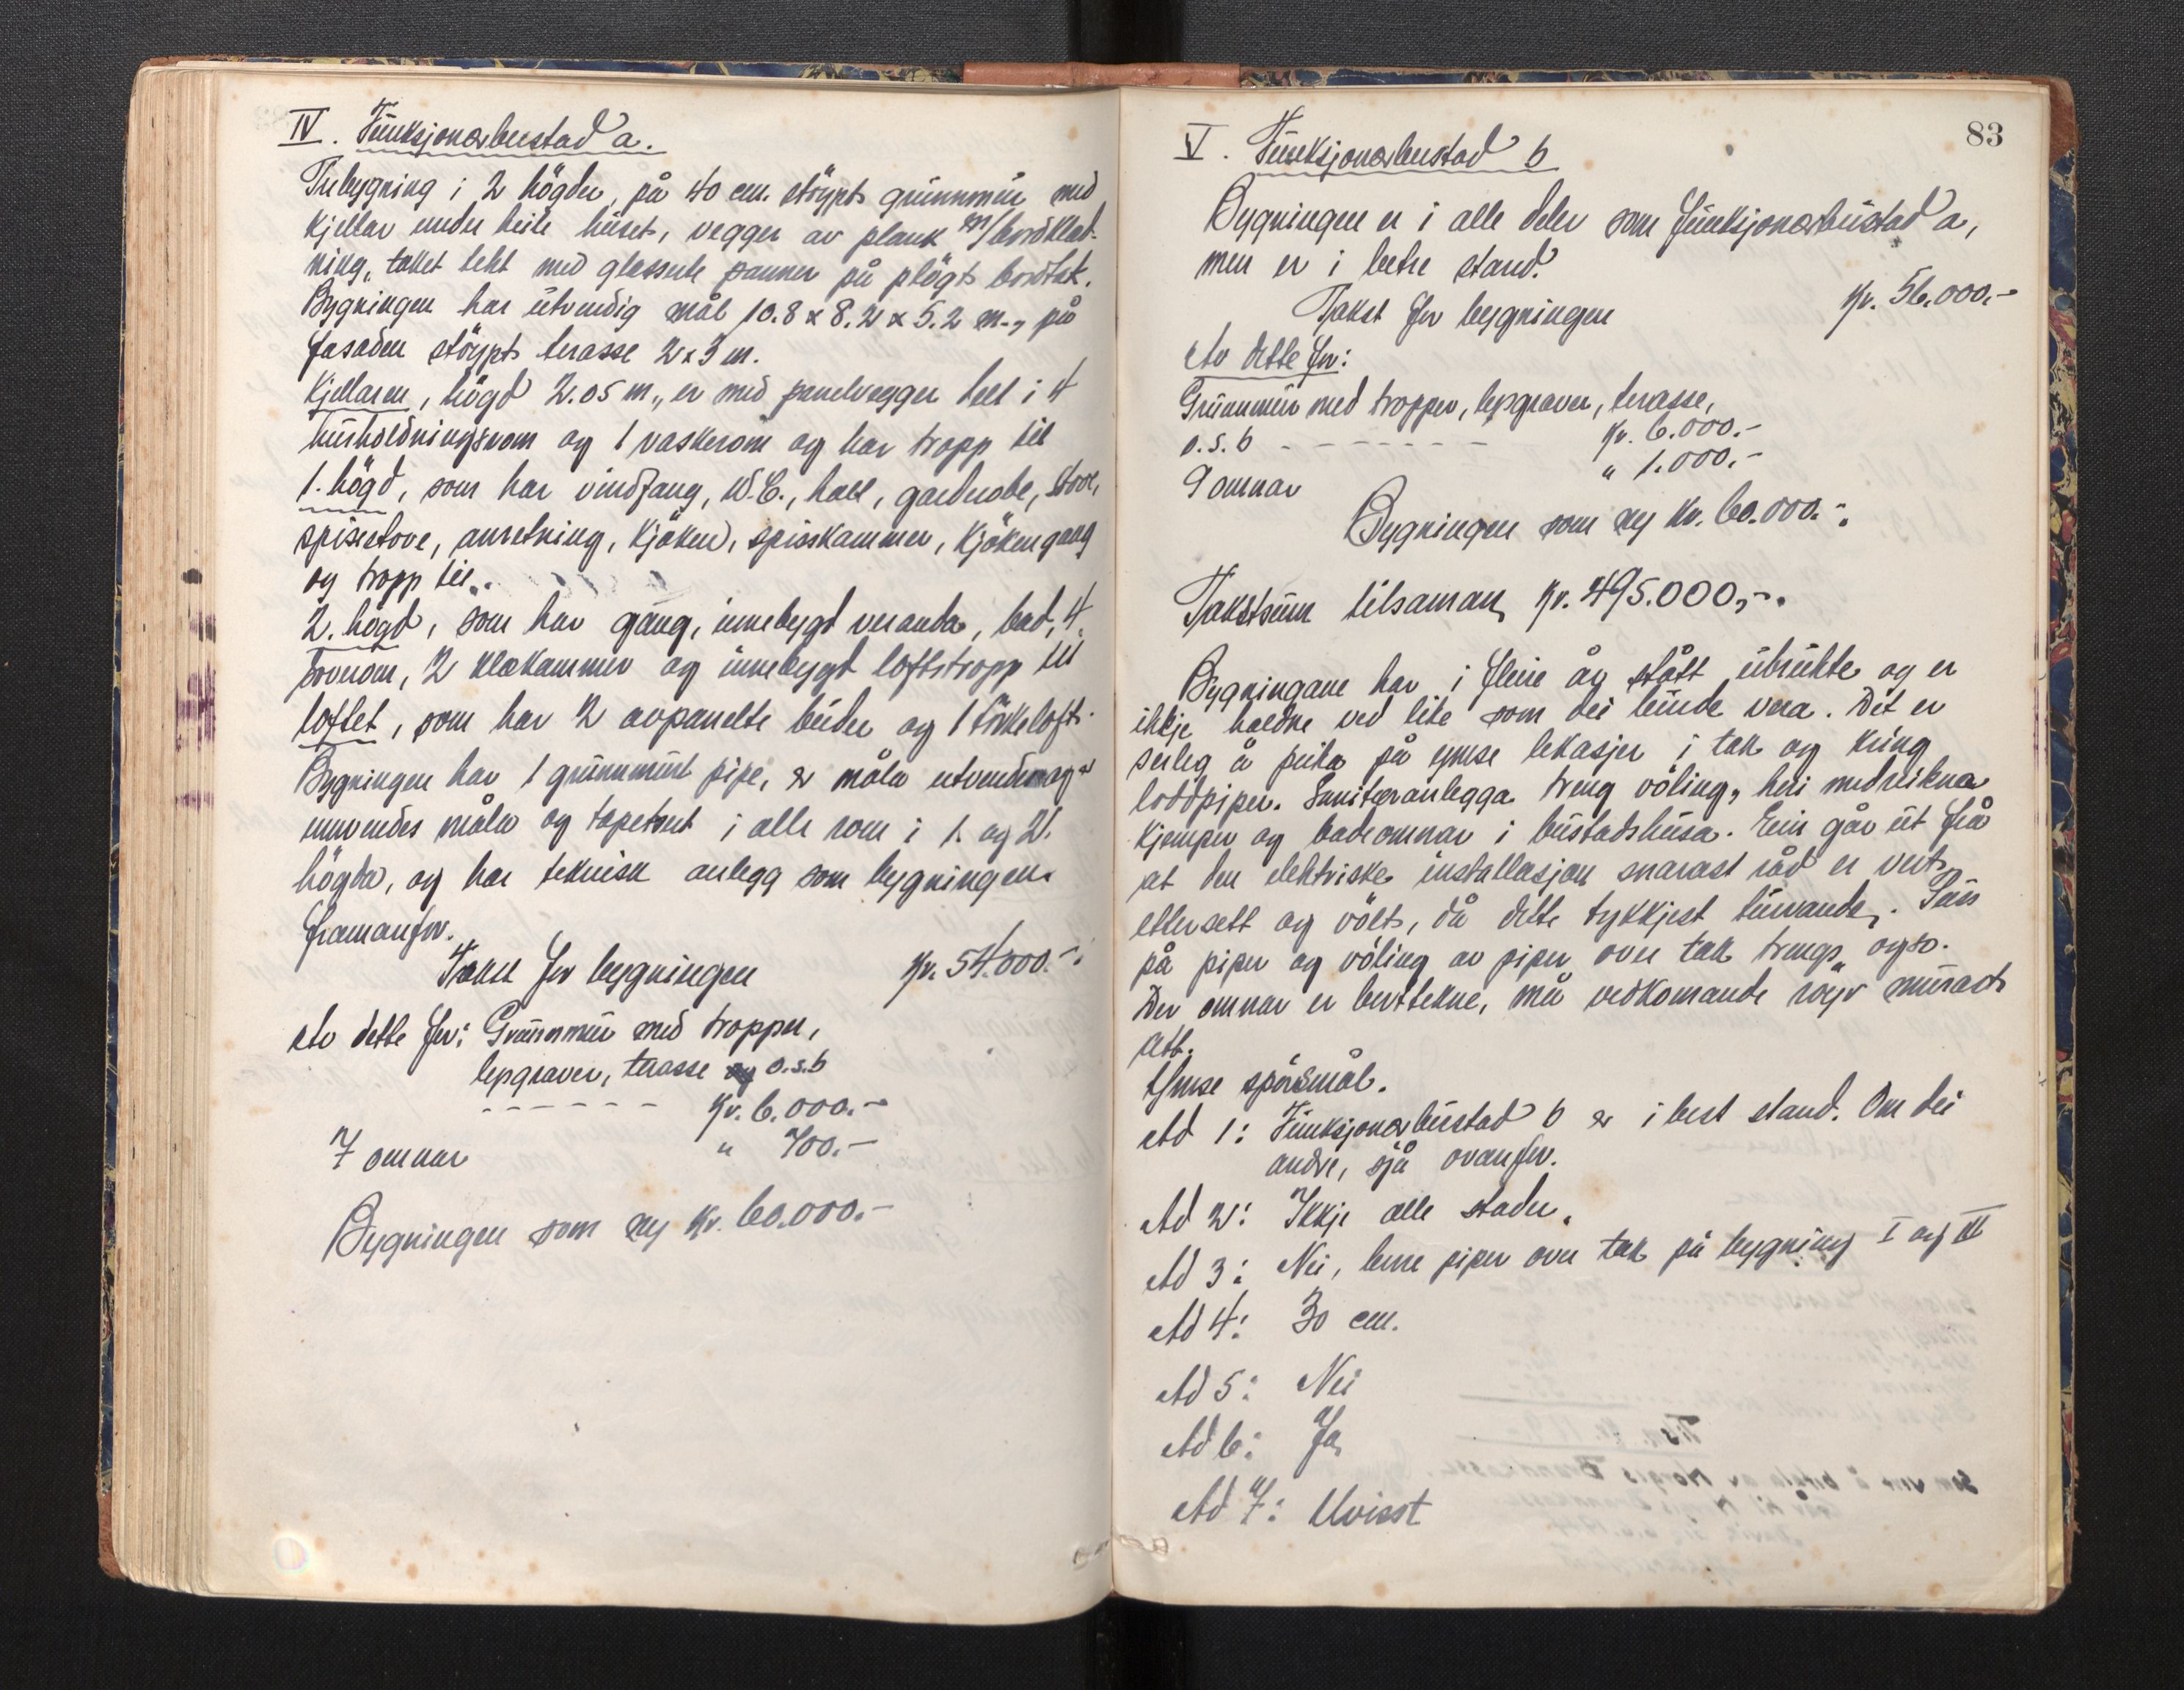 IV. Funksjonærbustad a.
Trebygning i 2 högder, på 40 cm. stöypt grunnmur med
kjellar under heile huset, vegger av plank m/bordklæd-
ning, taket tekt med glasserte panner på plögt bordtak.
Bygningen har utvendig mål 10.8 x 8.2 x 5.2 m., på
fasaden stöypt terasse 2 x 3 m.
Kjellaren, högd 2.05 m., er med panelvegger delt i 4
husholdningsrom og 1 vaskerom og har tropp til
1. högd, som har vindfang, W.C., hall, garderobe, stove,
spisestove, anretning, kjöken, spisskammer, kjökengang
og tropp til
2. högd, som har gang, innebygd veranda, bad, 4
soverom, 2 klækammer og innebygd loftstropp til
loftet, som har 2 avpanelte buder og 1 törkeloft.
Bygningen har 1 grunnmurt pipe, er måla utvendes og
innvendes måla og tapetsert i alle rom i 1. og 2.
högda, og har teknisk anlegg som bygningen
framanfor.
Takst for bygningen kr. 54.000.-
Av dette for: Grunnmur med tropper,
lysgraver, terasse o.s.b
- - - - - - kr. 6.000.-
7 omnar " 700.-
Bygningen som ny kr. 60.000.-
83
V. Funksjonærbustad b
Bygningen er i alle deler som funksjonærbustad a,
men er i betre stand.
Takst for bygningen kr. 56.000.-
Av dette for:
Grunnmur med tropper, lysgraver, terasse,
o.s.b - - - - - - - kr. 6.000.-
9 omnar " 1.000.-
Bygningen som ny kr. 60.000.-
Takstsum tilsaman kr. 495.000,-.
Bygningane har i fleire år stått ubrukte og er
ikkje haldne ved like som dei burde vera. Det er
serleg å peika på ymse lekasjer i tak og kring
loddpiper. Sanitæranlegga treng völing, heri medrekna
kjemper og badeomnar i bustadshusa. Ein går ut frå
at den elektriske installasjon snarast råd er vert
ettersett og völt, då dette tykkjest turvande. Puss
på piper og völing av piper over tak trengs ogso.
Der omnar er borttekne, må vedkomande röyr murast
att.
Ymse spörsmål.
Ad 1: Funksjonærbustad b er i best stand. Om dei
andre, sjå ovanfor.
Ad 2: Ikkje alle stader.
Ad 3: Nei, berre piper over tak på bygning I og II
Ad 4: 30 cm.
Ad 5: Nei
Ad 6: Ja
Ad 7: Uvisst